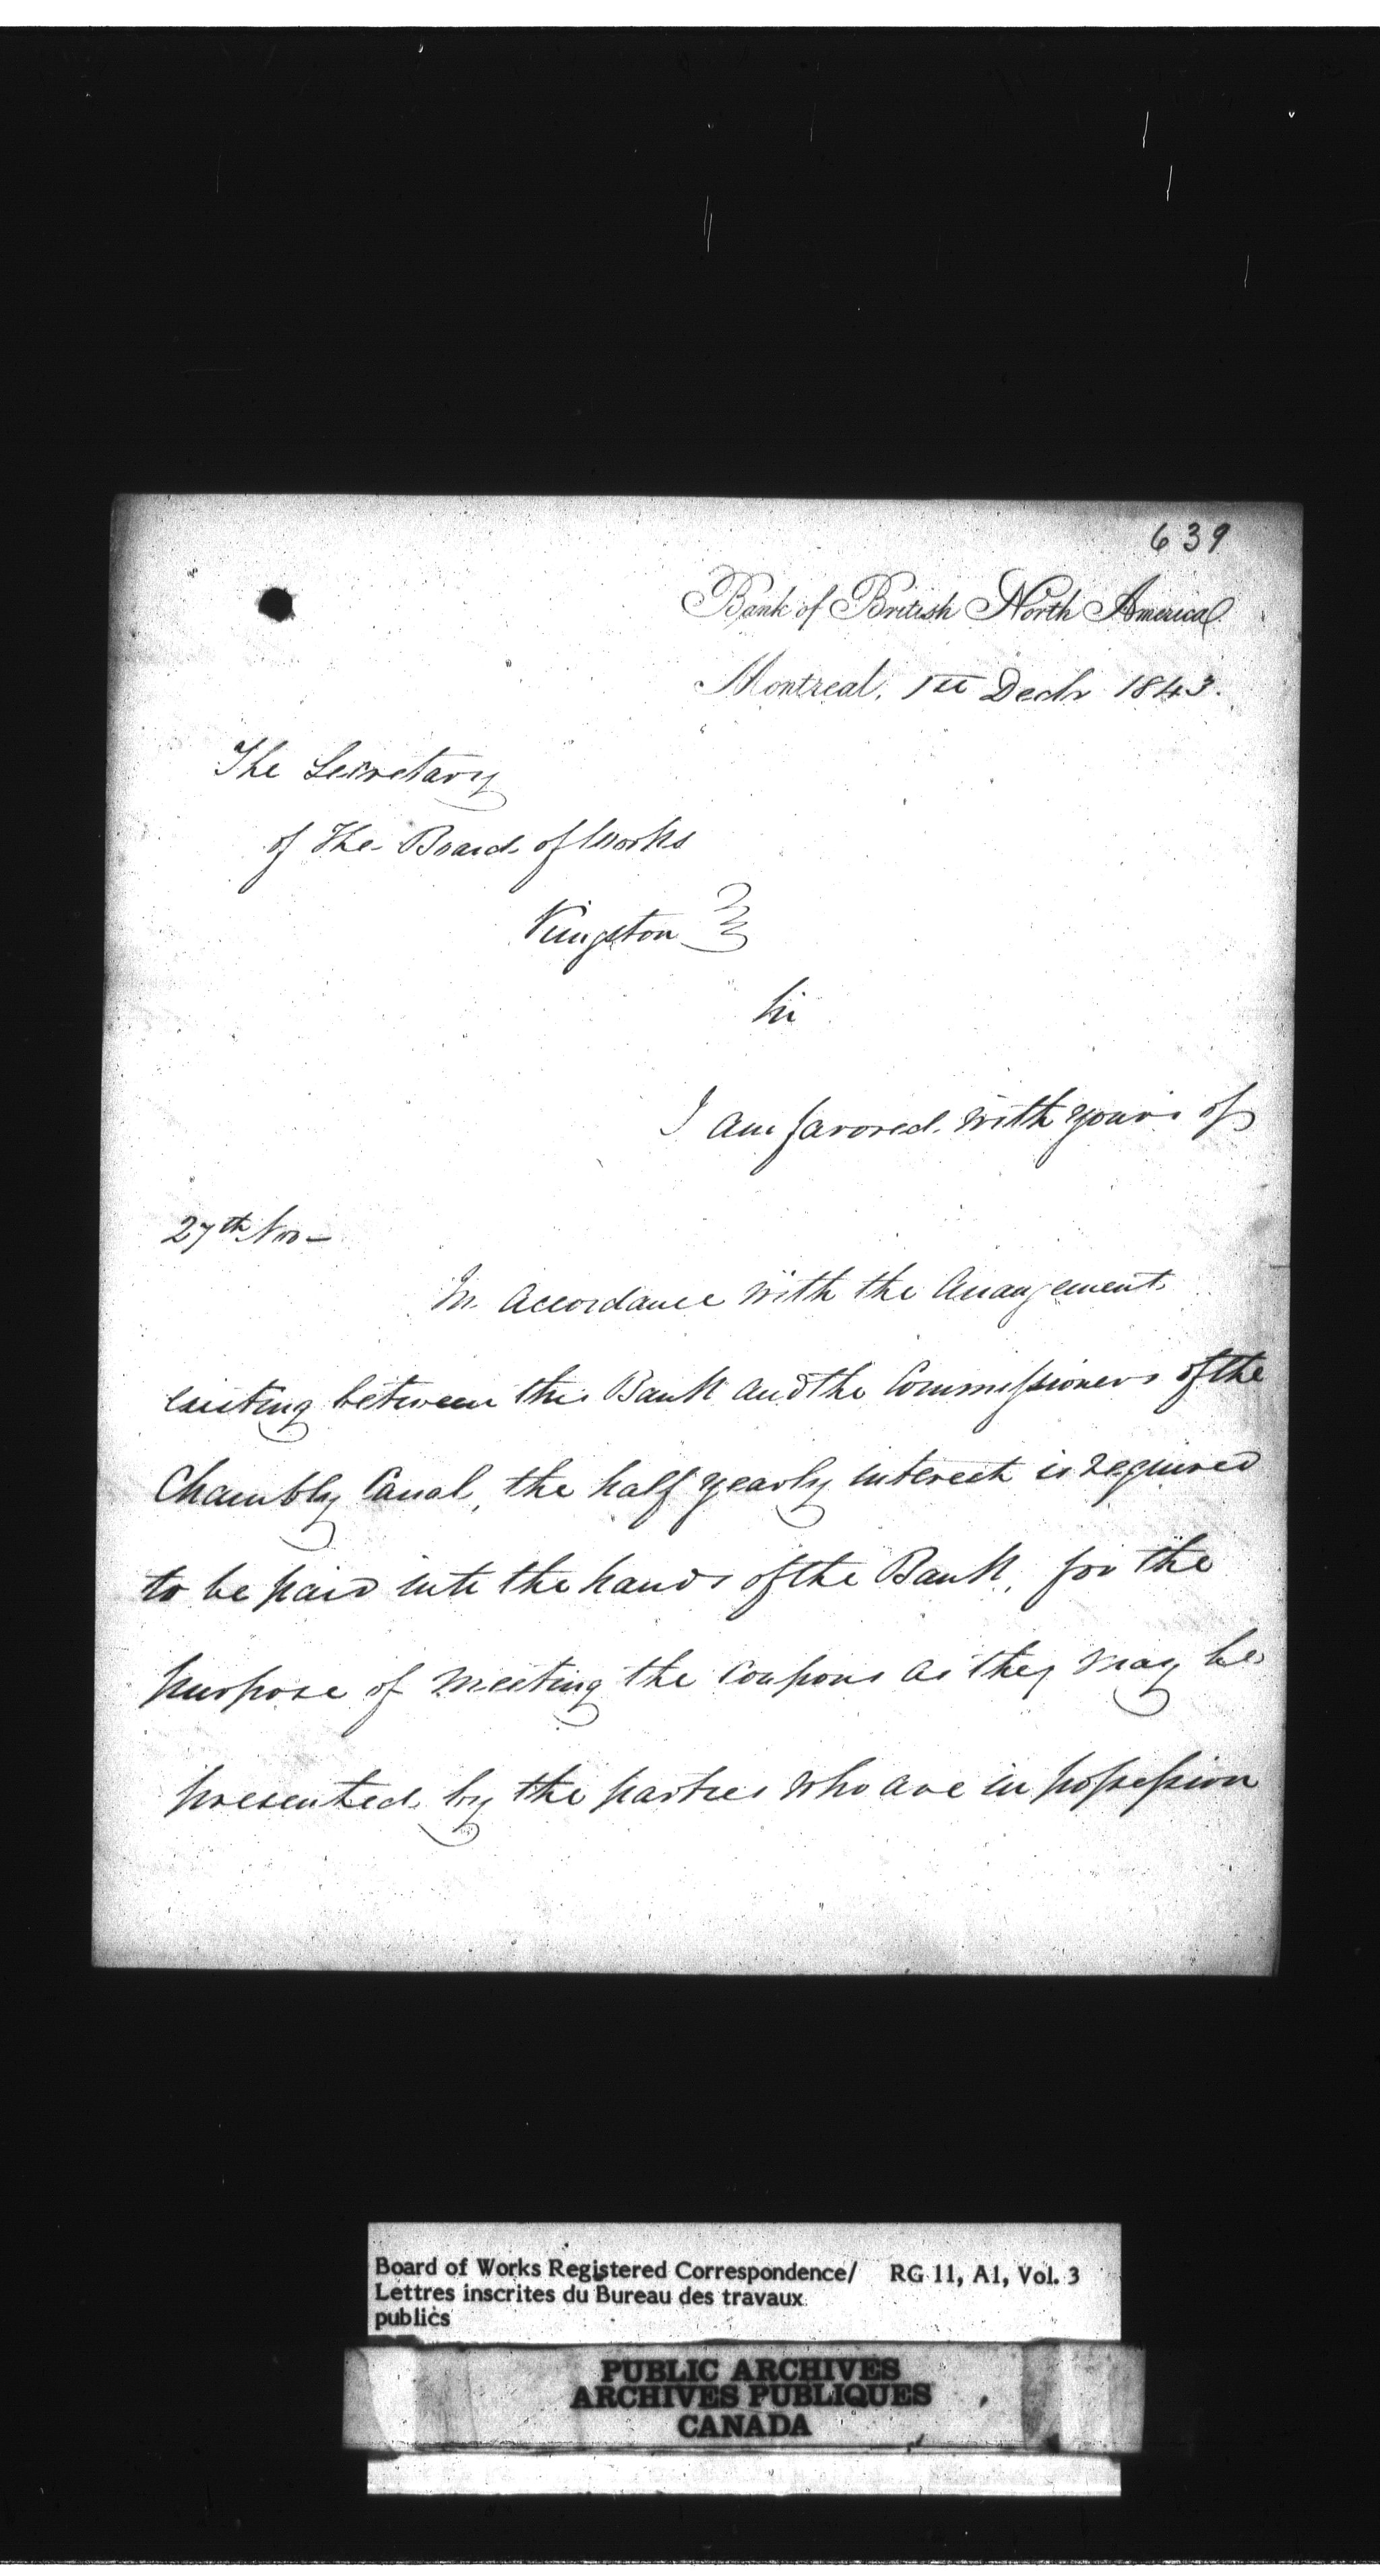 639
Bank of British North America
Montreal, 1st Decbr 1843.
The Secretary
of The Board of Works
Kingston
Sir
I am favored with yours of
27th Nov –
In accordance with the Arrangement
existing between this Bank and the Commissioners of the
Chambly Canal, the half yearly interest is required
to be paid into the hands of the Bank, for the
purpose of meeting the Coupons as they may be
presented by the parties who are in possession
Board of Works Registered Correspondence/ RG 11, A1, Vol. 3
Lettres inscrites du Bureau des travaux
publics
PUBLIC ARCHIVES
ARCHIVES PUBLIQUES
CANADA